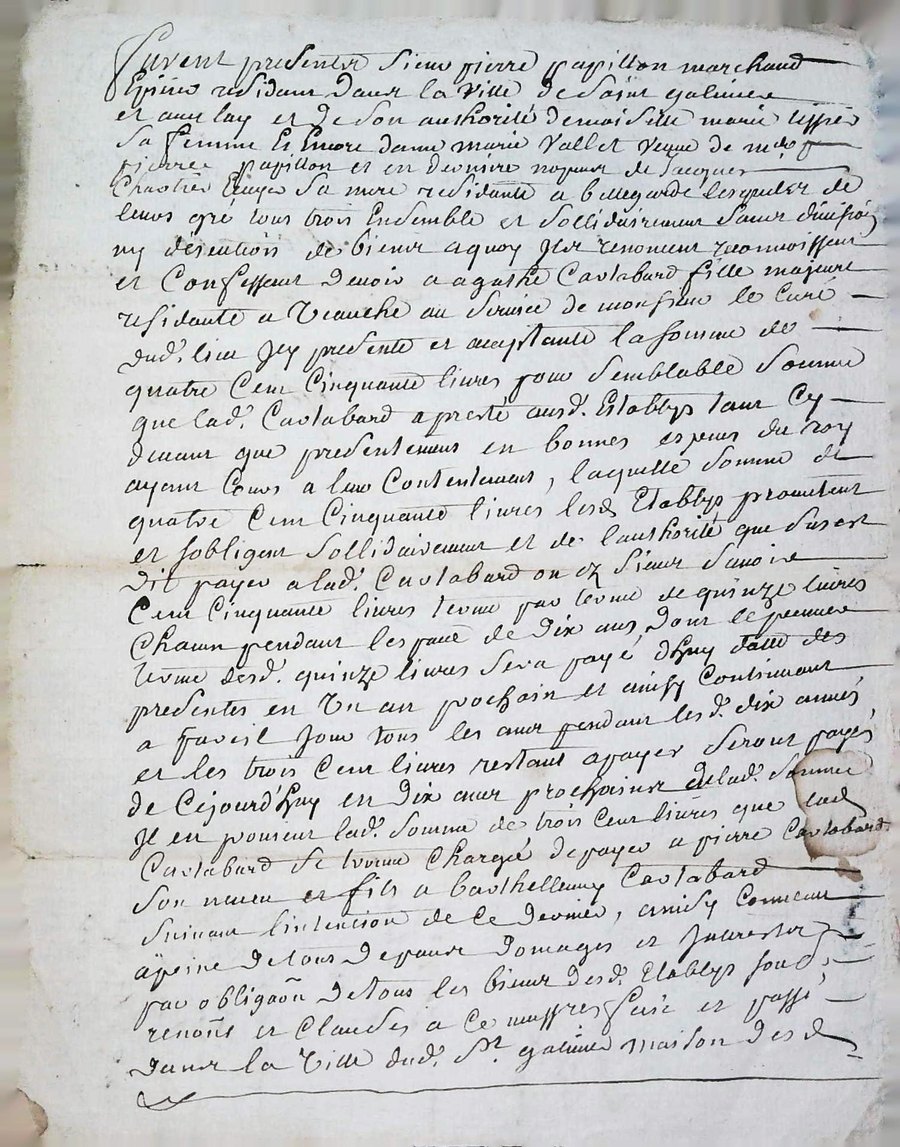 furent presentes sieur pierre papillon marchand
Epicier residant dans la ville de saint galmier
et avec luy et de son authorité demoiselle marie tissier
sa femme Et Encore dame marie vallet veuve de
pierre papillon et en derniere nopces de Jacques
Chartier sa mere residante a bellegarde lesquels de
leurs gré tous trois Ensemble et sollidairement sans division
ny discution de biens aquoy Ils renoncent reconnoissent
et Confessent devoir a agathe Cartabard fille majeure
residante a Veauche au service de monsieur le Curé
dud. lieu Icy presente et acceptante la somme de
quatre Cent Cinquante livres pour semblable somme
que lad. Cartabard a presté ausd. Establys tant Cy
devant que presentement en bonnes especes du roy
ayant Cours a leur Contentement, laquelle somme de
quatre Cent Cinquante livres lesd Etablys promettent
et sobligent sollidairement et de lauthorité que dusest
dit payer a lad. Cartabard ou sieurs savoir
Cent Cinquante livres terme par terme de quinze livres
Chacun pendant lespace de dix ans, dont le premier
terme desd. quinze livres sera payé dhuy datte des
presentes en Un an prochain et ainsy Continuant
a pareil Jour tous les ans pendant lesd. dix années,
et les trois Cent livres restant apayer seront payés
de Cejourd'huy en dix ans prochains delad. somme
Il en lad. somme de trois Cent livres que lad
Cartabard se trouve Chargée depayer a pierre Cartabard
son neveu et fils a barthellemy Cartabard
suivant lintention de Ce dernier, ainsy Convenu
apeine detous depens domages et Interests
par obligaõn detous les biens desd. Etablys soud.
renonˢ et Clauses a Ce fait et passé
dans la Ville dud. Sᵗ. galmier maison desd